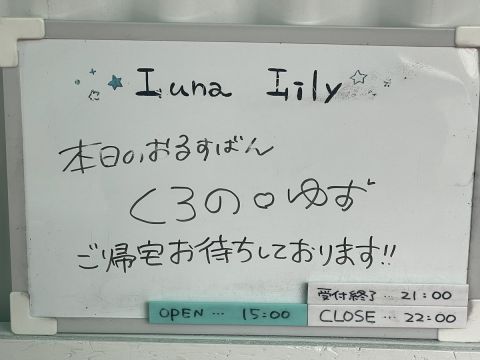 Luna Lily
本日のおるすばん
くろの○ゆず
ご帰宅お待ちしております!!
受付終了… 21:00
OPEN… 15:00
CLOSE… 22:00